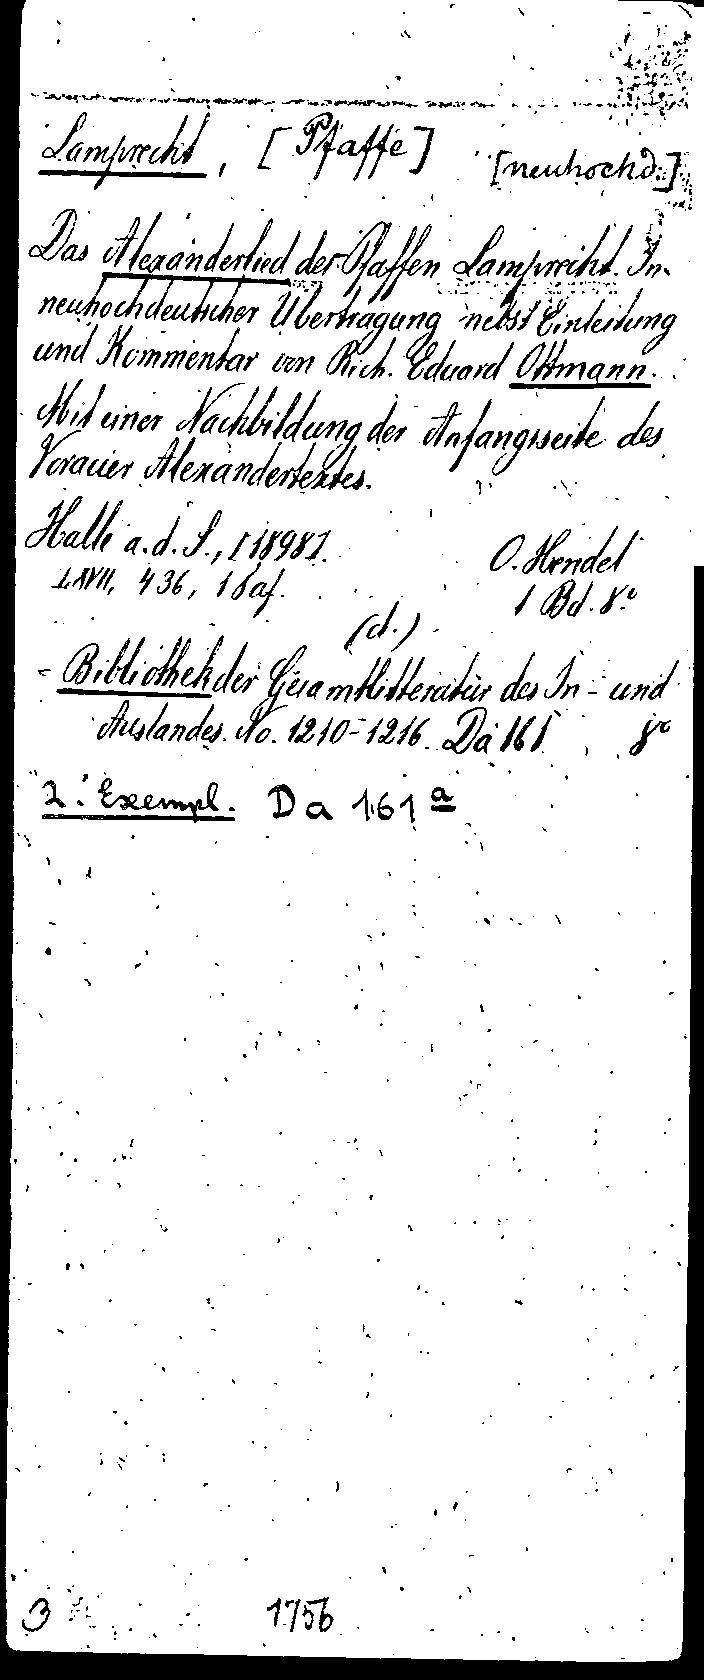 Lamprecht, [Pfaffe] [neuhochd.]
Das Alexanderlied der Pfaffen Lamprecht. In
neuhochdeutscher Übertragung nebst Einleitung
und Kommentar von Rich. Eduard Ottmann.
Mit einer Nachbildung der Anfangsseite des
Vorauer Alexandertextes.
Halle a. d. S., [1898]. O. Hendel
436, 1 1 Bd. 8°
(d.)
- Bibliothek der Gesamtlitteratur des In- und
Auslandes. No. 1210-1216. Da 161 8°
2. Exempl. Da 161 a
3 1756